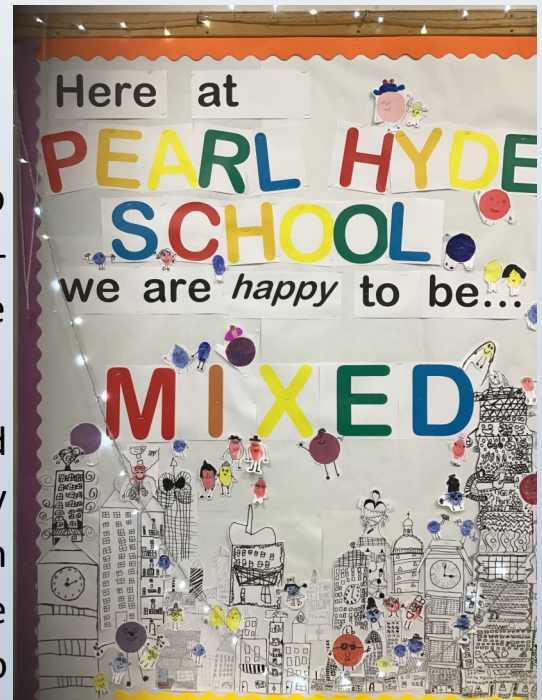 Here at
PEARL HYDE
SCHOOL
we are happy to be...
MIXED